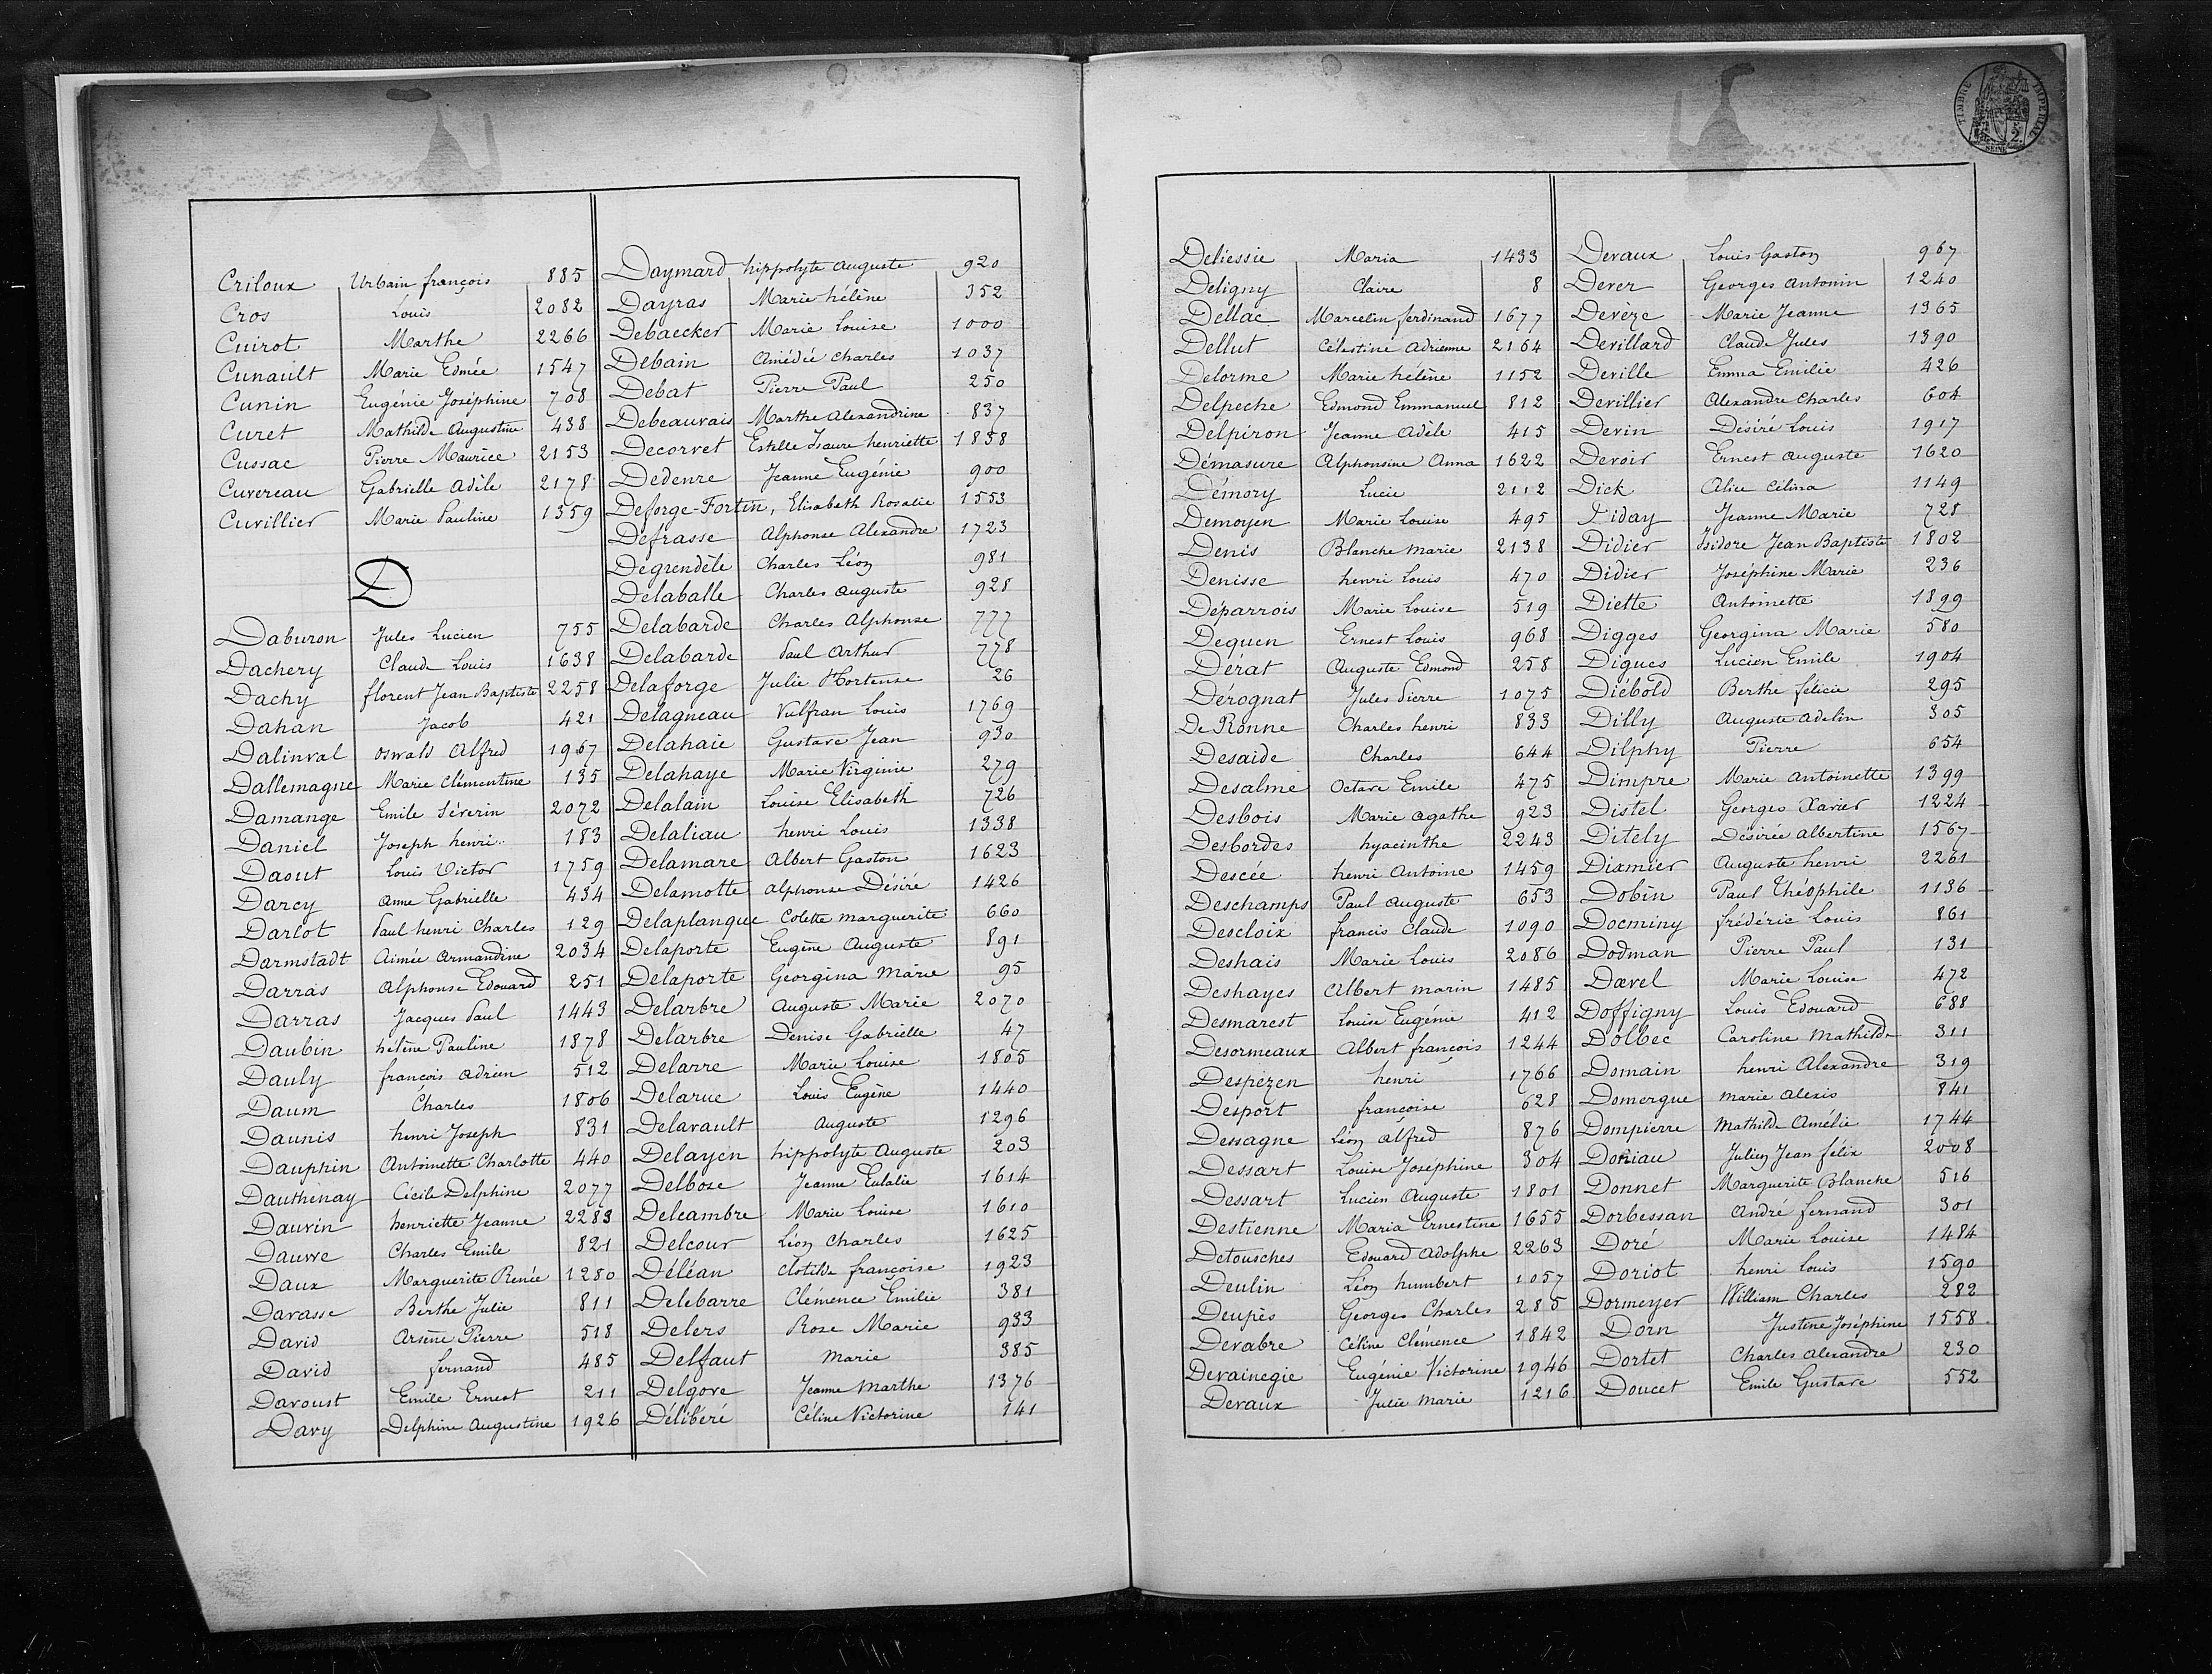 Criloux Urbain françois 885
Cros Louis 2082
Cuirot Marthe 2266
Cunault Marie Edmée 1547
Cunin Eugénie Joséphine 708
Curet Mathilde Augustine 438
Cussac Pierre Maurice 2153
Cuvereau Gabrielle Adèle 2178
Cuvillier Marie Pauline 1359
D
Daburon Jules Lucien 755
Dachery Claude Louis 1638
Dachy florent Jean Baptiste 2258
Dahan Jacob 421
Dalinval oswald Alfred 1967
Dallemagne Marie Clémentine 135
Damange Emile Séverin 2072
Daniel Joseph henri 183
Daout Louis Victor 1759
Darcy anne Gabrielle 434
Darlot Paul henri Charles 129
Darmstadt Aimée Armandine 2034
Darras Alphonse Edouard 251
Darras Jacques Paul 1443
Daubin hélène Pauline 1878
Dauly françois Adrien 512
Daum Charles 1806
Daunis henri Joseph 831
Dauphin Antoinette Charlotte 440
Dauthenay Cécile Delphine 2077
Dauvin henriette Jeanne 2283
Dauvre Charles Emile 821
Daux Marguerite Renée 1280
Davasse Berthe Julie 811
David Arsène Pierre 518
David fernand 485
Davoust Emile Ernest 211
Davy Delphine Augustine 1926
Daymard hippolyte Auguste 920
Dayras Marie hélène 352
Debaecker Marie Louise 1000
Debain Amédée Charles 1037
Debat Pierre Paul 250
Debeauvais Marthe Alexandrine 837
Decorvet Estelle Isaure henriette 1838
Dedenre Jeanne Eugénie 900
Deforge-Fortin, Elisabeth Rosalie 1553
Defrasse Alphonse Alexandre 1723
Degrendèle Charles Léon 981
Delaballe Charles Auguste 928
Delabarde Charles Alphonse 777
Delabarde Paul Arthur 778
Delaforge Julie Hortense 26
Delagneau Vulfran Louis 1769
Delahaie Gustave Jean 930
Delahaye Marie Virginie 279
Delalain Louise Elisabeth 726
Delaliau henri Louis 1338
Delamare Albert Gaston 1623
Delamotte Alphonse Désiré 1426
Delaplanque Colette marguerite 660
Delaporte Eugène Auguste 891
Delaporte Georgina Marie 95
Delarbre Auguste Marie 2070
Delarbre Denise Gabrielle 47
Delarre Marie Louise 1805
Delarue Louis Eugène 1440
Delavault Auguste 1296
Delayen hippolyte Auguste 203
Delbose Jeanne Eulalie 1614
Delcambre Marie Louise 1610
Delcour Léon Charles 1625
Déléan Clotilde françoise 1923
Delebarre Clémence Emilie 381
Delers Rose Marie 933
Delfaut Marie 385
Delgove Jeanne Marthe 1376
Délibéré Céline Victorine 141
TIMBRE IMPERIAL
SEINE
Deliessie Maria 1433
Deligny Claire 8
Dellac Marcelin ferdinand 1677
Dellut Célestine Adrienne 2164
Delorme Marie hélène 1152
Delpeche Edmond Emmanuel 812
Delpiron Jeanne Adèle 415
Démasure Alphonsine Anna 1622
Démory Lucie 2112
Demoyen Marie Louise 495
Denis Blanche Marie 2138
Denisse henri Louis 470
Déparrois Marie Louise 519
Dequen Ernest Louis 968
Dérat Auguste Edmond 258
Dérognat Jules Pierre 1075
De Ronne Charles henri 833
Desaide Charles 644
Desalme Octave Emile 475
Desbois Marie Agathe 923
Desbordes hyacinthe 2243
Descée henri Antoine 1459
Deschamps Paul Auguste 653
Descloix francis Claude 1090
Deshais Marie Louis 2086
Deshayes Albert marin 1485
Desmarest Louise Eugénie 412
Desormeaux Albert françois 1244
Despezen henri 1766
Desport françoise 628
Dessagne Léon Alfred 876
Dessart Louise Joséphine 304
Dessart Lucien Auguste 1801
Destienne Maria Ernestine 1655
Detousches Edouard Adolphe 2263
Deulin Léon humbert 1057
Deupès Georges Charles 285
Devabre Céline Clémence 1842
Devainegie Eugénie Victorine 1946
Devaux Julie Marie 1216
Devaux Louis Gaston 967
Dever Georges Antonin 1240
Devèze Marie Jeanne 1365
Devillard Claude Jules 1390
Deville Emma Emilie 426
Devillier Alexandre Charles 604
Devin Désiré Louis 1917
Devoir Ernest Auguste 1620
Dick Alice Célina 1149
Diday Jeanne Marie 728
Didier Isidore Jean Baptiste 1802
Didier Joséphine Marie 236
Diette Antoinette 1899
Digges Georgina Marie 580
Digues Lucien Emile 1904
Diébold Berthe félicie 295
Dilly Auguste Adelin 305
Dilphy Pierre 654
Dimpre Marie Antoinette 1399
Distel Georges Xavier 1224
Ditely Désirée Albertine 1567
Dixmier Auguste henri 2261
Dobin Paul Théophile 1136
Docminy frédéric Louis 861
Dodman Pierre Paul 131
Dœvel Marie Louise 472
Doffigny Louis Edouard 688
Dolbec Caroline Mathilde 311
Domain henri Alexandre 319
Domergue Marie Alexis 841
Dompierre Mathilde Amélie 1744
Doniau Julien Jean félix 2008
Donnet Marguerite Blanche 516
Dorbessan André fernand 301
Doré Marie Louise 1484
Doriot henri Louis 1590
Dormeyer William Charles 282
Dorn Justine Joséphine 1558
Dortet Charles Alexandre 230
Doucet Emile Gustave 552